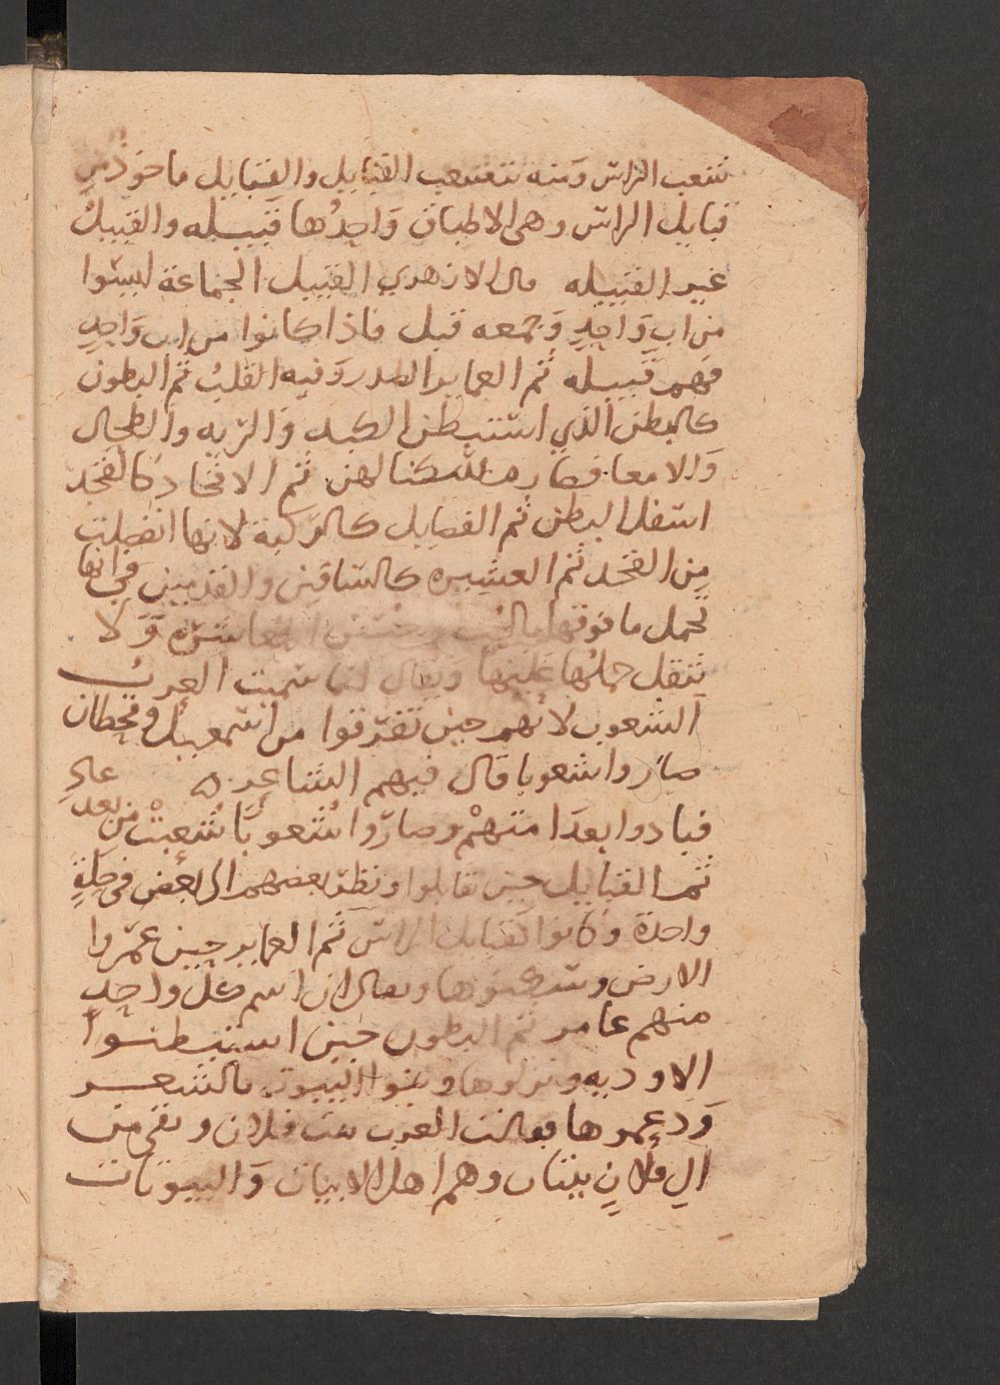 تتعب الراس ومنه تتشعب القبايل والقبايل ماخوذ من
قبايل الراس وهي الاطباق وَاحِدُها قبيله والقبيلُ
غير القبيله قال الازهري القبيل الجماعة ليسوا
من ابٍ وَاحِدٍ وَجمعه قبل فاذا كانوا من اب وَاحِدٍ
فهم قبيله ثم العماير الصدر وَفيه القلبُ ثم البطون
كالبطن الذي استبطن الكبد وَالريه والطحال
وَالامعا فصار مسكنا لهن ثم الافخاد كالفخد
اسفل البطن ثم الفصايل كالركبة لانها انفصلت
مِن الفخد ثم العشيره كالساقين والقدمين في انها
تحمل ما فوقها بالحب وحسن المعاشره وَلا
تثقل حملها عليها ويقال لما سميت العرب
الشعوب لانهم حين تفرقوا من اسمعيل وقحطان
صاروا شعوبا قال فيهم الشاعر
فبادوا بعدَ امتهمْ وصارُوا شُعوبًا شُعبتْ من بعد عادِ
ثم القبايل حين تقابلوا ونظر بعضهم الى بعض في حِلةٍ
واحدة وكانوا كقبايل الراس ثم العماير حين عمّروا
الارض وسكنوها ويقال ان اسم كل واحدٍ
منهم عامر ثم البطون حين استبطنوا
الاوديه ونزلوها وبنوا البيوت بالشعر
وَدعموها فقالت العرب بيت فلان وبقي من
الِ فلانٍ بيتان وهم اهل الابيات وَالبيوتات